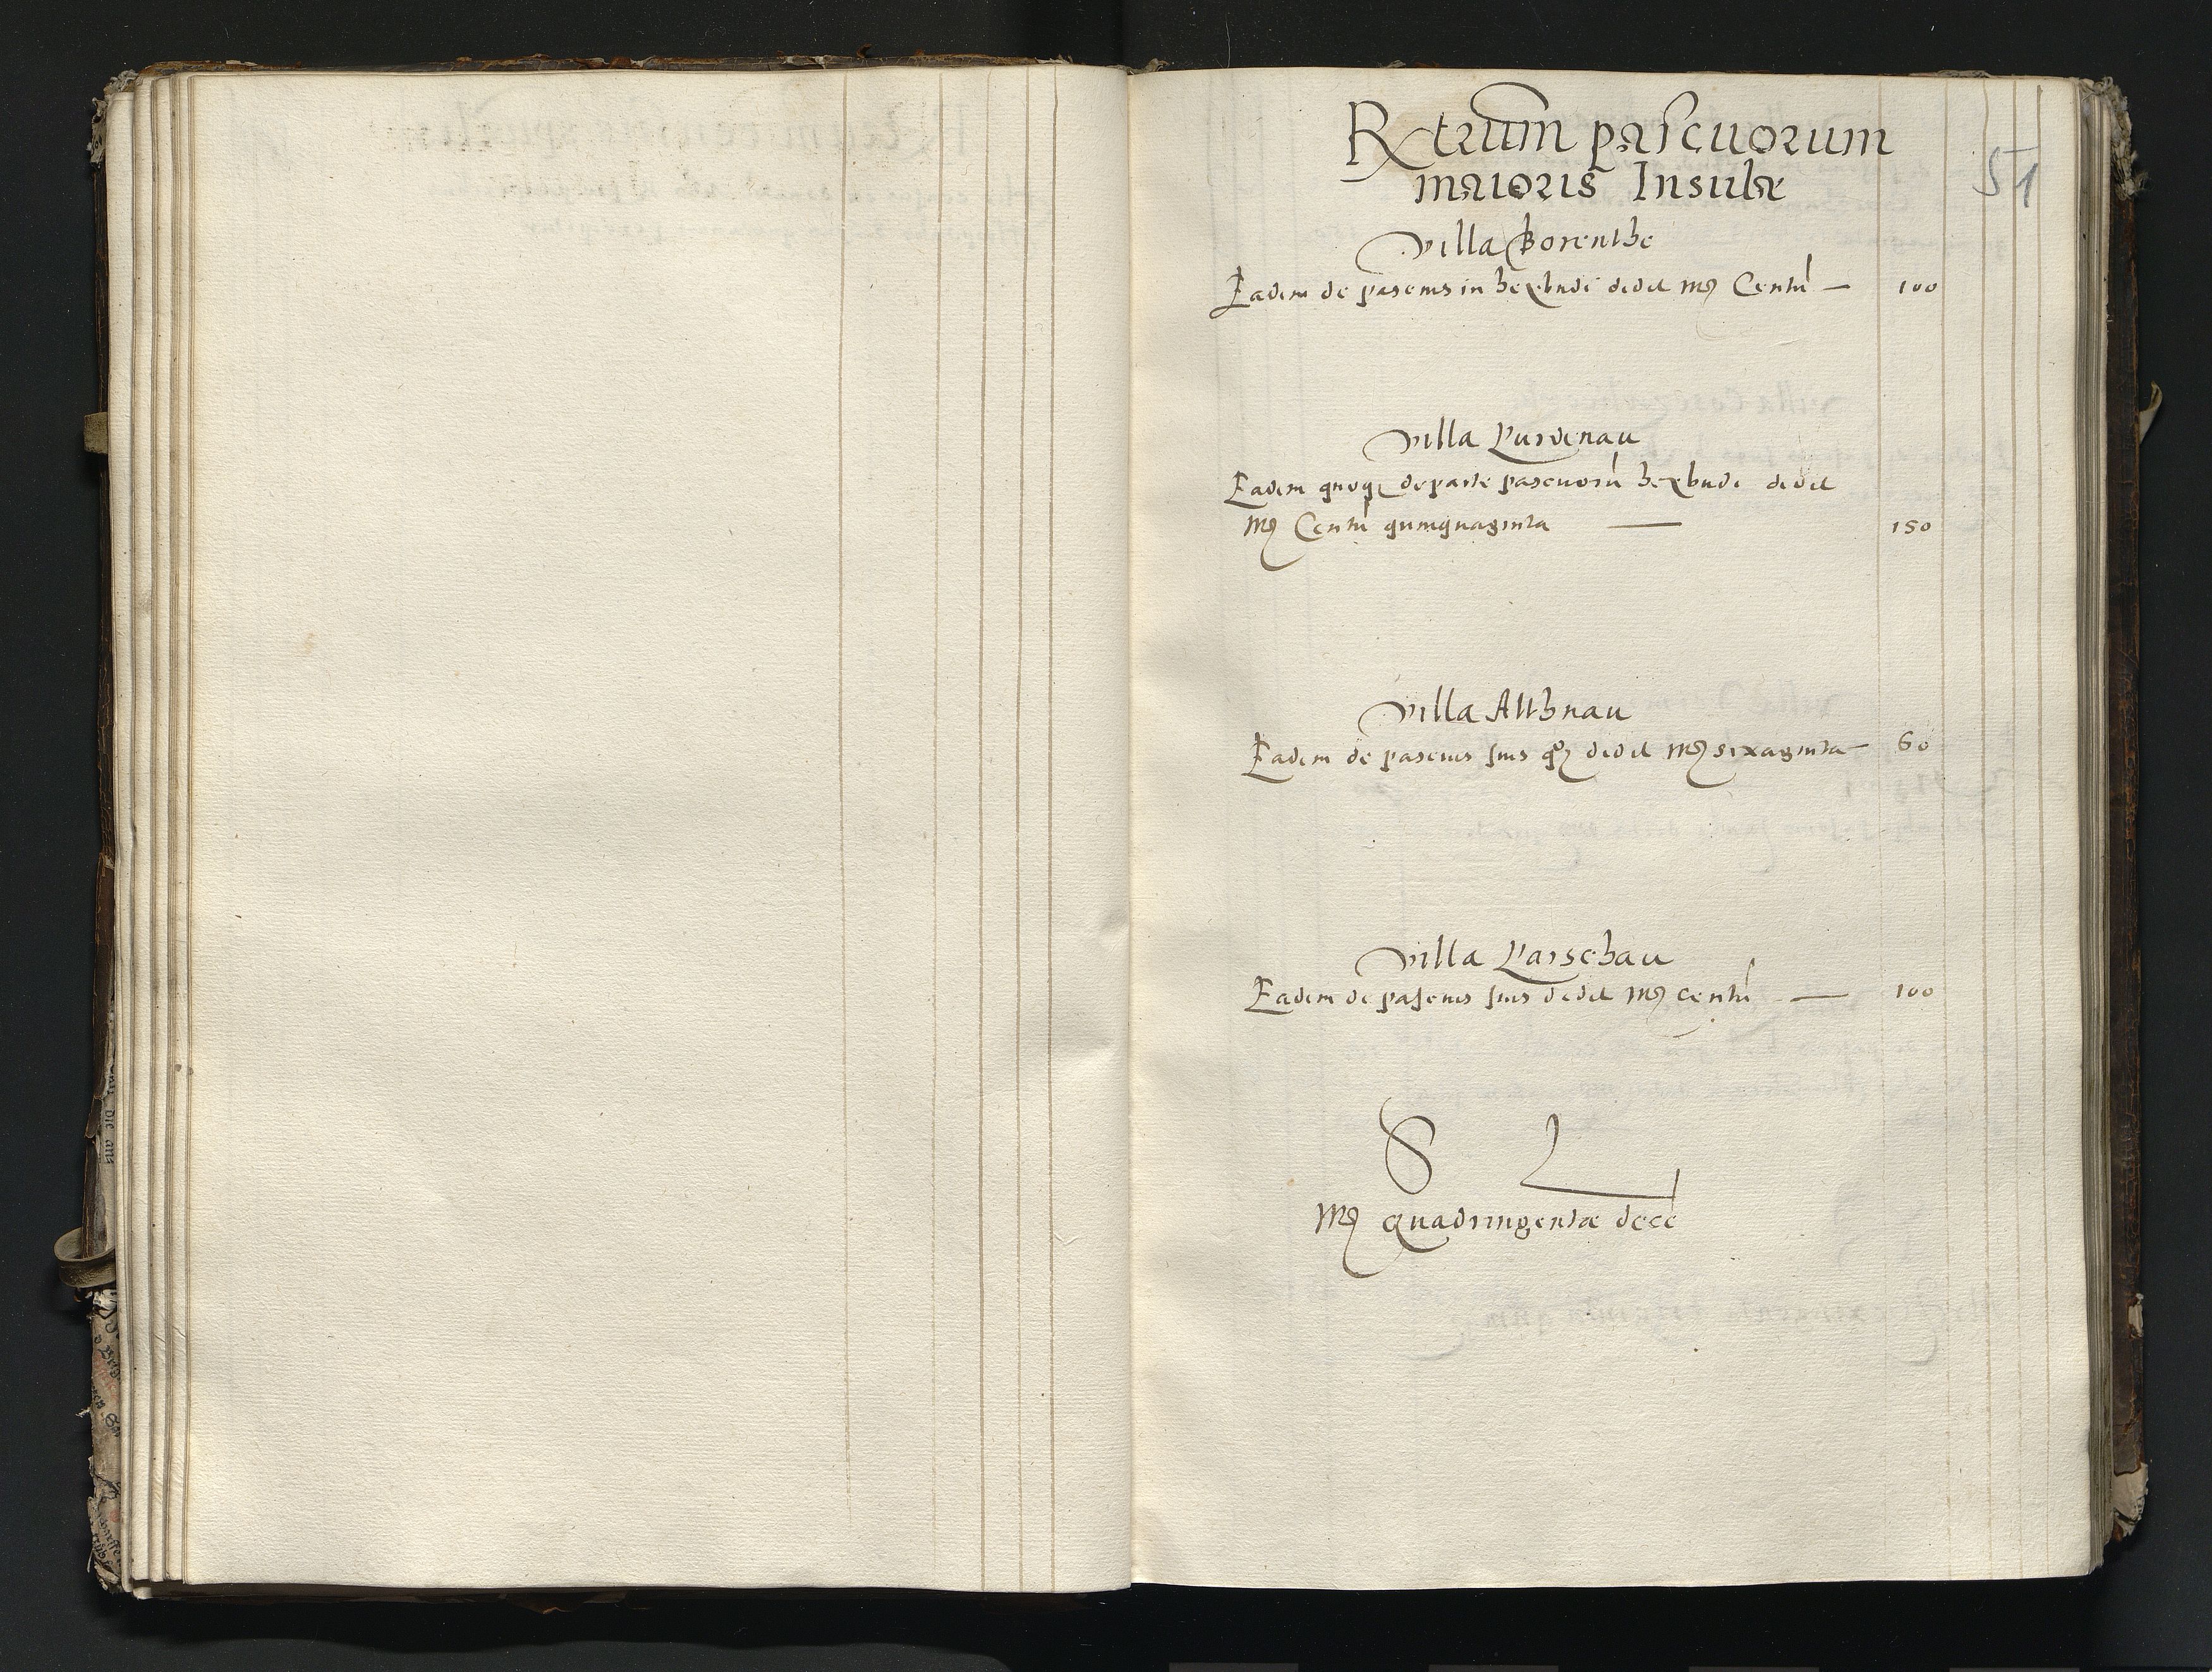 Rctrum pascuorum
maioris Insulæ
51
Villa Borenthe
Eadem de pascuis in herbudi dedit Mȝ Centū — 100
Villa Lurvenau
Eadem quoqȝ de parte pascuorū herbudi dedit
Mȝ Centū quinquaginta — 150
Villa Althnau
Eadem de pascuis suis qȝ dedit Mȝ sexaginta — 60
Villa Larschau
Eadem de pascuis suis dedit Mȝ centū — 100
S L
Mȝ quadringentæ decē